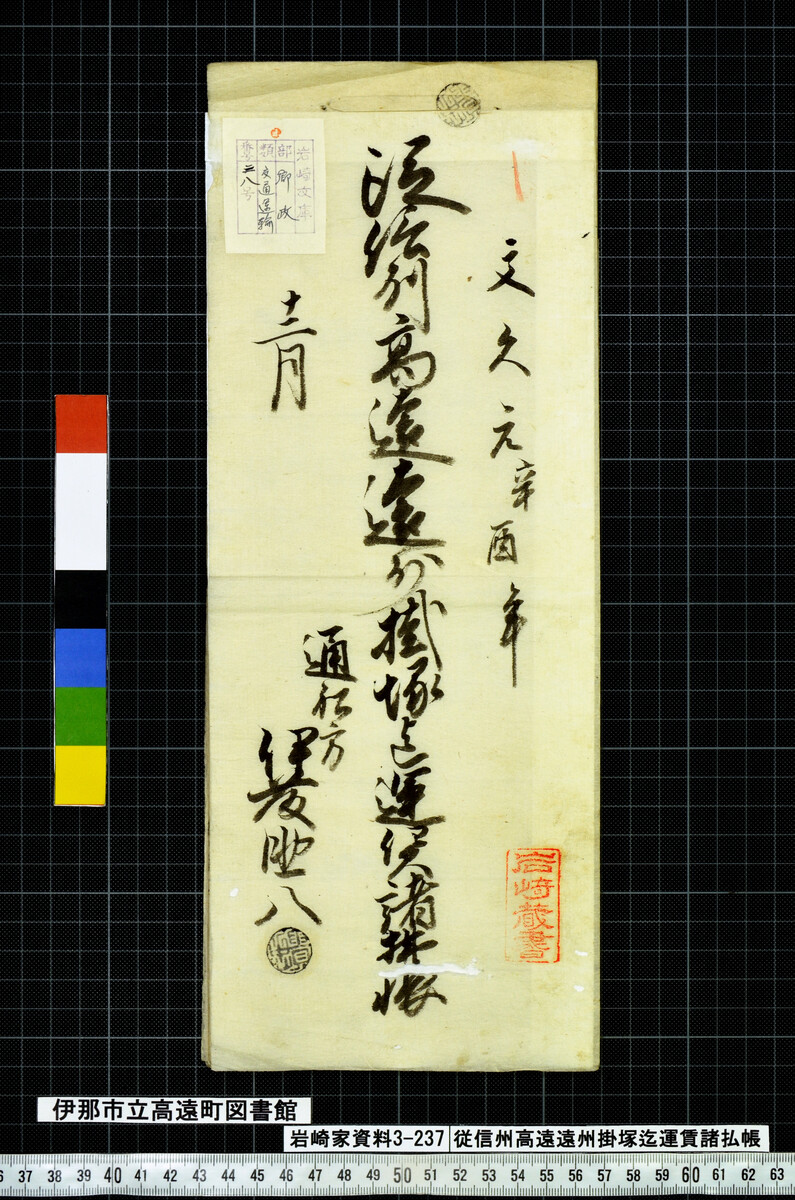 文久元辛酉年
従信州高遠遠州掛塚迄運賃諸払帳
十二月
通船方
伊藤助八
岩崎文庫
部 郷政
類 交通運輸
番号 三八号
岩崎蔵書
伊那市立高遠町図書館
岩崎家資料3-237 従信州高遠遠州掛塚迄運賃諸払帳
37 38 39 40 41 42 43 44 45 46 47 48 49 50 51 52 53 54 55 56 57 58 59 60 61 62 63